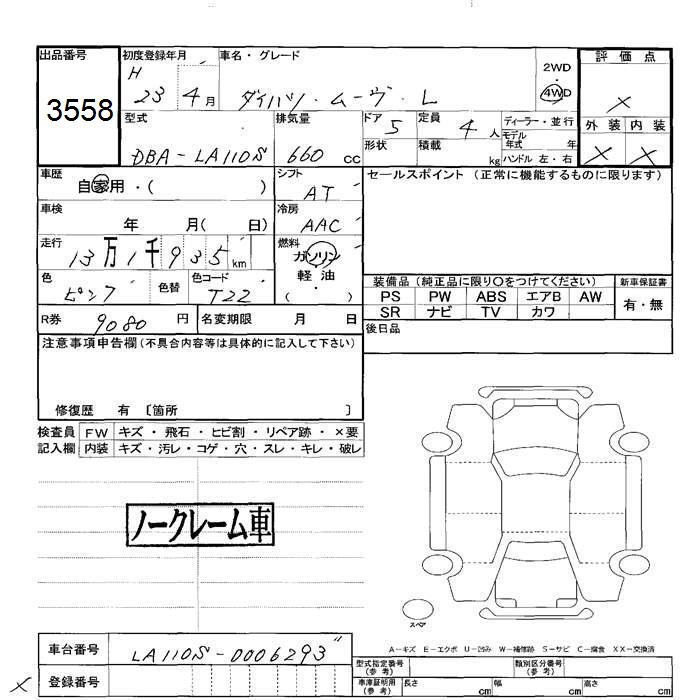 出品番号 初度登録年月 車名・グレード 2WD 評価点
3558 H 23 4月 ダイハツ・ムーヴ・L ・ 4WD ×
型式 排気量 ドア 5 定員 4人 ディーラー・並行 外装 内装
DBA-LA110S 660cc 形状 積載 kg モデル年式 年 × ×
ハンドル 左・右
車歴 自家用・( ) シフト AT セールスポイント (正常に機能するものに限ります)
車検 年 月( 日) 冷房 AAC
走行 13万1千935km 燃料 ガソリン
軽油
( )
色 ピンク 色替 色コード T22 装備品 (純正品に限り○をつけてください) 新車保証書
PS PW ABS エアB AW 有・無
SR ナビ TV カワ
R券 9080円 名変期限 月 日 後日品
注意事項申告欄(不具合内容等は具体的に記入して下さい)
修復歴 有 〔箇所 〕
検査員 FW キズ・飛石・ヒビ割・リペア跡・×要
記入欄 内装 キズ・汚レ・コゲ・穴・スレ・キレ・破レ
ノークレーム車
スペア
A－キズ E－エクボ U－凹み W－補修跡 S－サビ C－腐食 XX－交換済
車台番号 LA110S-0006293" 型式指定番号(参考) 類別区分番号(参考)
× 登録番号 車庫証明用(参考) 長さ cm 幅 cm 高さ cm